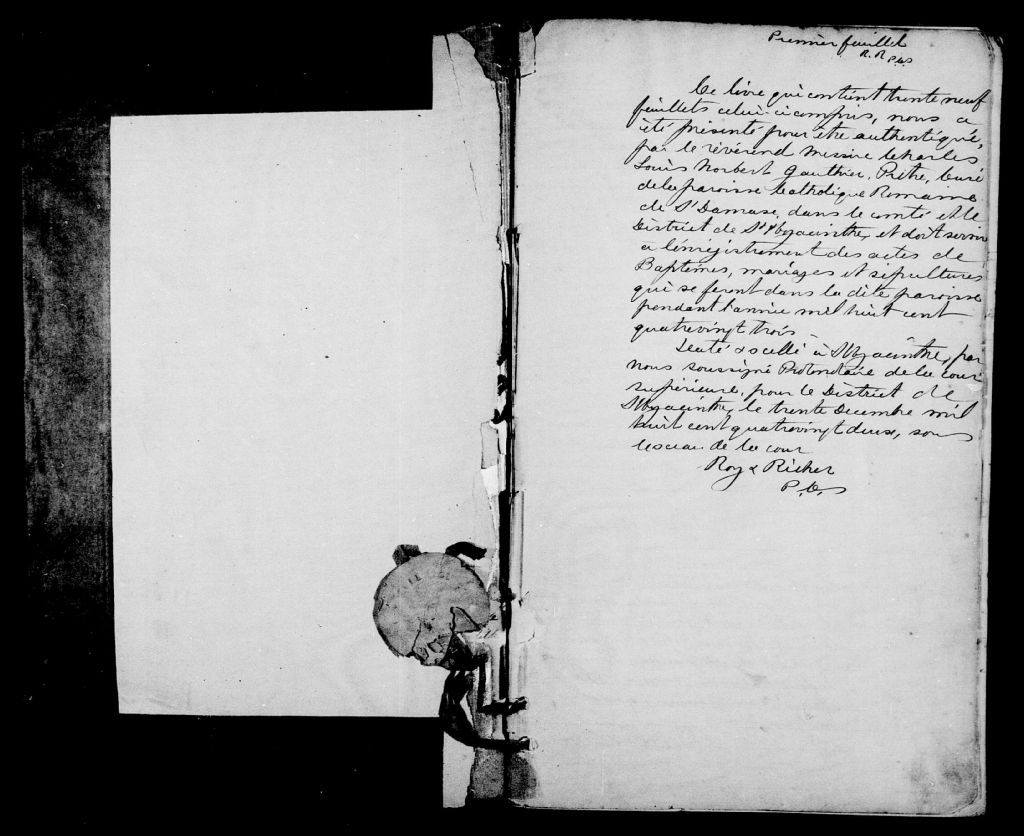 Premier feuillet
R. R P.C.S
Ce livre qui contient trente neuf
feuillets celui-ci compris, nous a
été présenté pour être authentiqué,
par le révérend Messire Charles
Louis Norbert Gauthier, Prêtre, Curé
de la paroisse Catholique Romaine
de St Damase, dans le comté et le
District de St Hyacinthe, et doit servir
a l'enrégistrement des actes de
Baptêmes, mariages et sépultures
qui se feront dans la dite paroisse
pendant l'année mil huit cent
quatrevingt trois
Coté & scellé à St Hyacinthe, par
nous soussigné Protonotaire de la cour
supérieure, pour le District de
St Hyacinthe, le trente Decembre mil
huit cent quatrevingt deux, sous
le sceau de la cour
Roy & Richer
P.C.S